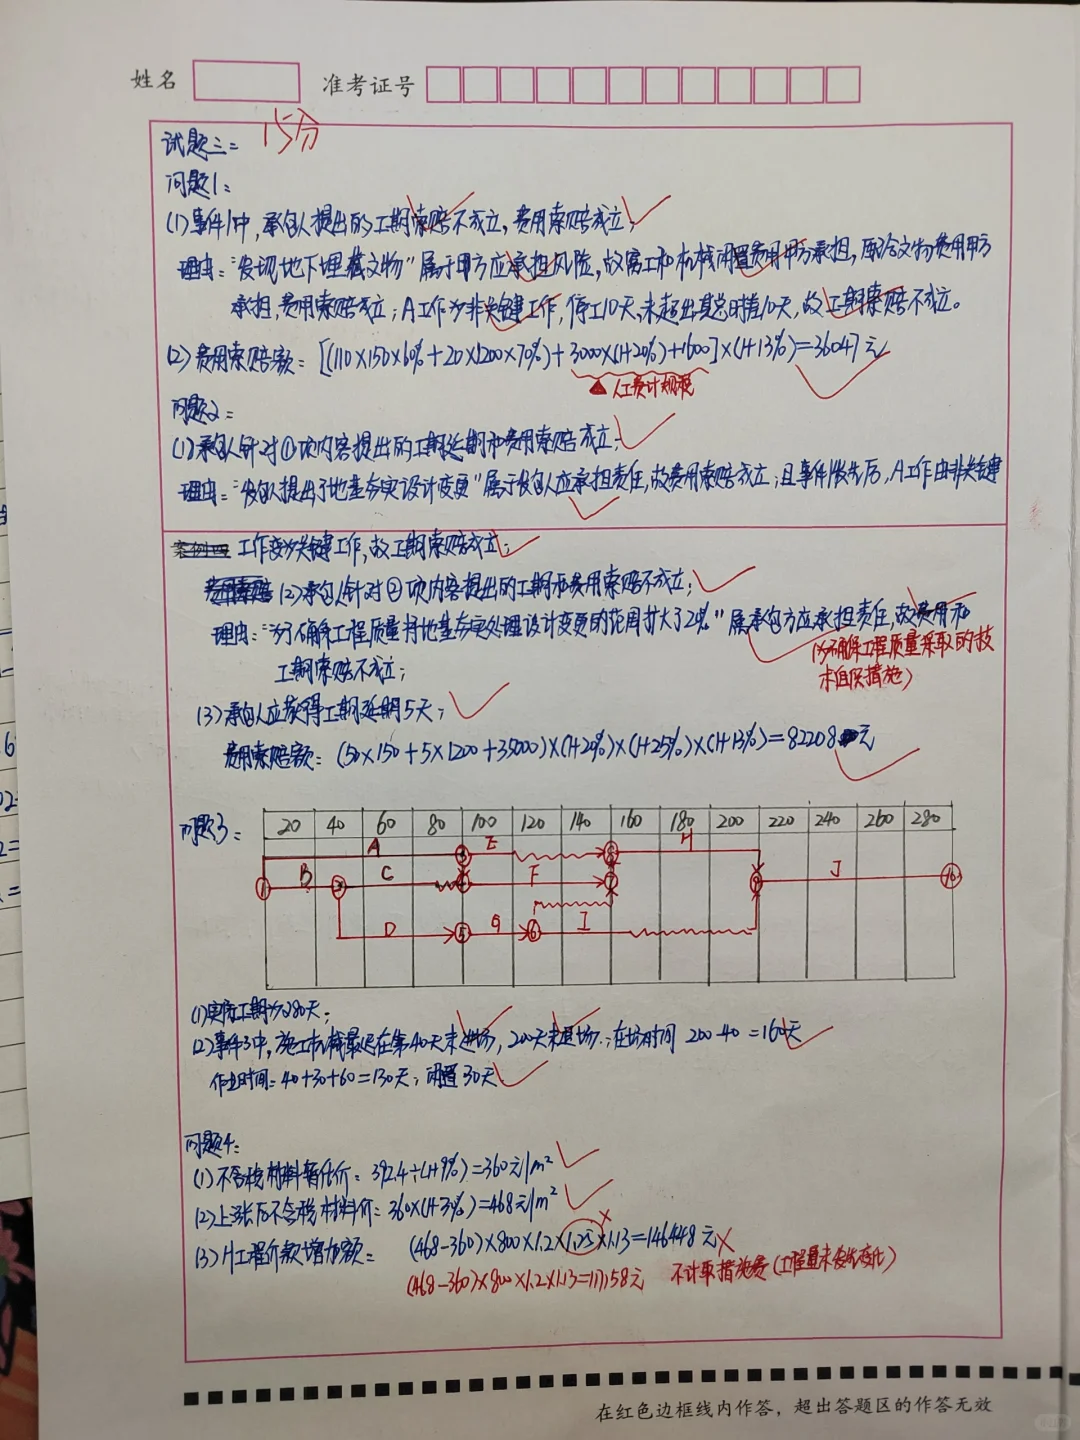 姓名 准考证号
试题三: 15分
问题1:
(1)事件1中,承包人提出的工期索赔不成立,费用索赔成立;
理由:"发现地下埋藏文物"属于甲方应承担风险,故窝工和机械闲置费用甲方承担,原给文物费用甲方
承担,费用索赔成立;A工作为非关键工作,停工10天,未超出其总时差10天,故工期索赔不成立。
(2)费用索赔额:[(110×150×60%+20×1200×70%)+3000×(1+20%)+1600]×(1+13%)=36047元
人工费计规税
问题2:
(1)承包人针对①项内容提出的工期延期和费用索赔成立;
理由:"发包人提出了地基夯实设计变更"属于发包人应承担责任,故费用索赔成立;且事件1发生后,A工作由非关键
工作变为关键工作,故工期索赔成立;
(2)承包人针对②项内容提出的工期和费用索赔不成立;
理由:"为了确保工程质量将地基夯实处理设计变更的范围扩大了20%"属承包方应承担责任,故费用和
(为确保工程质量采取的技
工期索赔不成立;
术组织措施)
(3)承包人应获得工期延期5天;
费用索赔额:(50×150+5×1200+35000)×(1+20%)×(1+25%)×(1+13%)=82208元
问题3:
20 40 60 80 100 120 140 160 180 200 220 240 260 280
A E H
B C F J
D G I
(1)实际工期为280天;
(2)事件3中,施工机械最迟在第40天末进场,200天末退场,∴在场时间 200-40=160天
作业时间=40+30+60=130天;闲置30天
问题4:
(1)不含税材料暂估价:392.4÷(1+9%)=360元/m²
(2)上涨后不含税材料价:360×(1+30%)=468元/m²
(3)H工程价款增加额= (468-360)×800×1.2×1.25×1.13=146448元
(468-360)×800×1.2×1.13=117158元 不计算措施费(工程量未发生变化)
在红色边框线内作答,超出答题区的作答无效